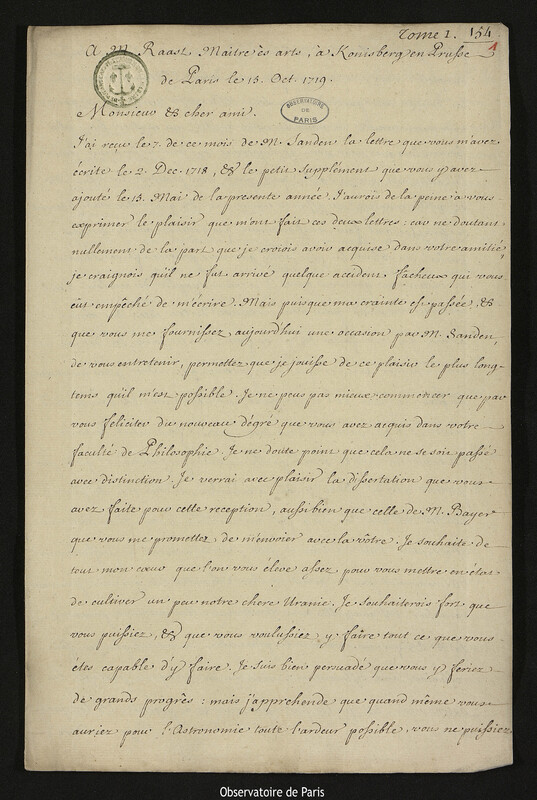 Tome 1. 154
1
A M. Raast Maitre ès arts, à Konisberg en Prusse
de Paris le 15. Oct. 1719.
OBSERVATOIRE
DE
PARIS
Monsieur & cher ami.
J'ai reçu le 7. de ce mois de M. Sanden la lettre que vous m'avez
écrite le 2. Dec. 1718, & le petit supplément que vous y avez
ajouté le 15. Mai de la presente année. J'aurois de la peine à vous
exprimer le plaisir que m'ont fait ces deux lettres: car ne doutant
nullement de la part que je croiois avoir acquise dans votre amitié,
je craignois qu'il ne fut arrivé quelque accident facheux qui vous
eût empêché de m'écrire. Mais puisque ma crainte est passée, &
que vous me fournissez aujourd'hui une occasion par M. Sanden,
de vous entretenir, permettez que je jouisse de ce plaisir le plus long-
tems qu'il m'est possible. Je ne peus pas mieux commencer que par
vous feliciter du nouveau dégré que vous avez acquis dans votre
faculté de Philosophie. Je ne doute point que cela ne se soit passé
avec distinction. Je verrai avec plaisir la dissertation que vous
avez faite pour cette reception, aussi bien que celle de M. Bayer
que vous me promettez de m'envoier avec la vôtre. Je souhaite de
tout mon cœur que l'on vous élève assez pour vous mettre en état
de cultiver un peu notre chere Uranie. Je souhaiterois fort que
vous puissiez, & que vous voulussiez y faire tout ce que vous
étes capable d'y faire. Je suis bien persuadé que vous y feriez
de grands progrès: mais j'apprehende que quand même vous
auriez pour l'Astronomie toute l'ardeur possible, vous ne puissiez
Observatoire de Paris